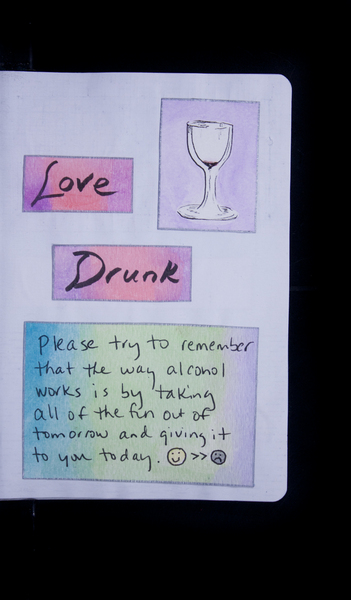 Love
Drunk
Please try to remember
that the way alcohol
works is by taking
all of the fun out of
tomorrow and giving it
to you today. ☺ >> ☹